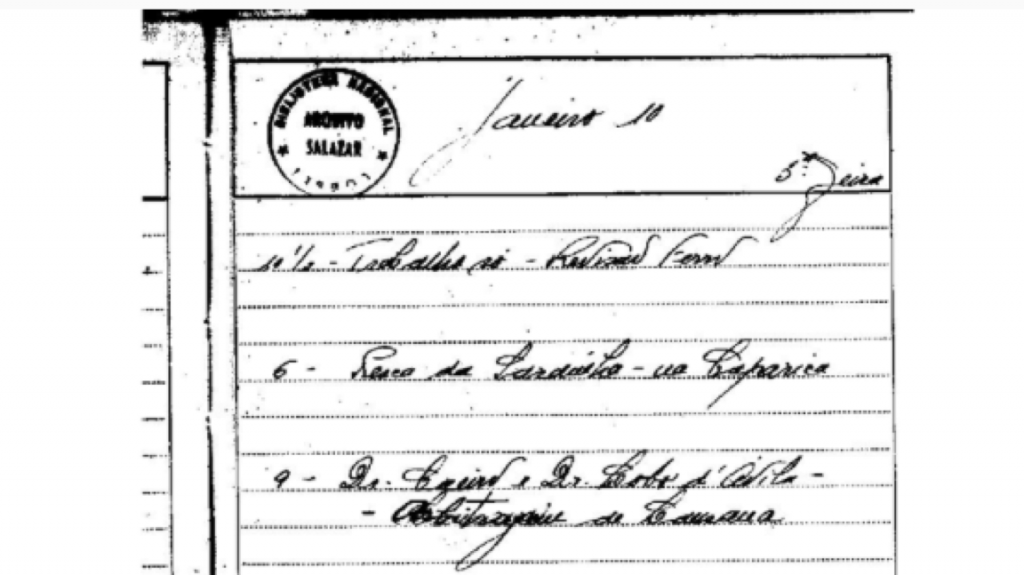 BIBLIOTECA NACIONAL
ARQUIVO
SALAZAR
LISBOA
Janeiro 10
5ª feira
10 1/2 - Trabalho só - Revisão
6 - Pesca da Sardinha - na Caparica
9 - Dr. e Dr. Lobo d'Avila -
- Arbitragem de